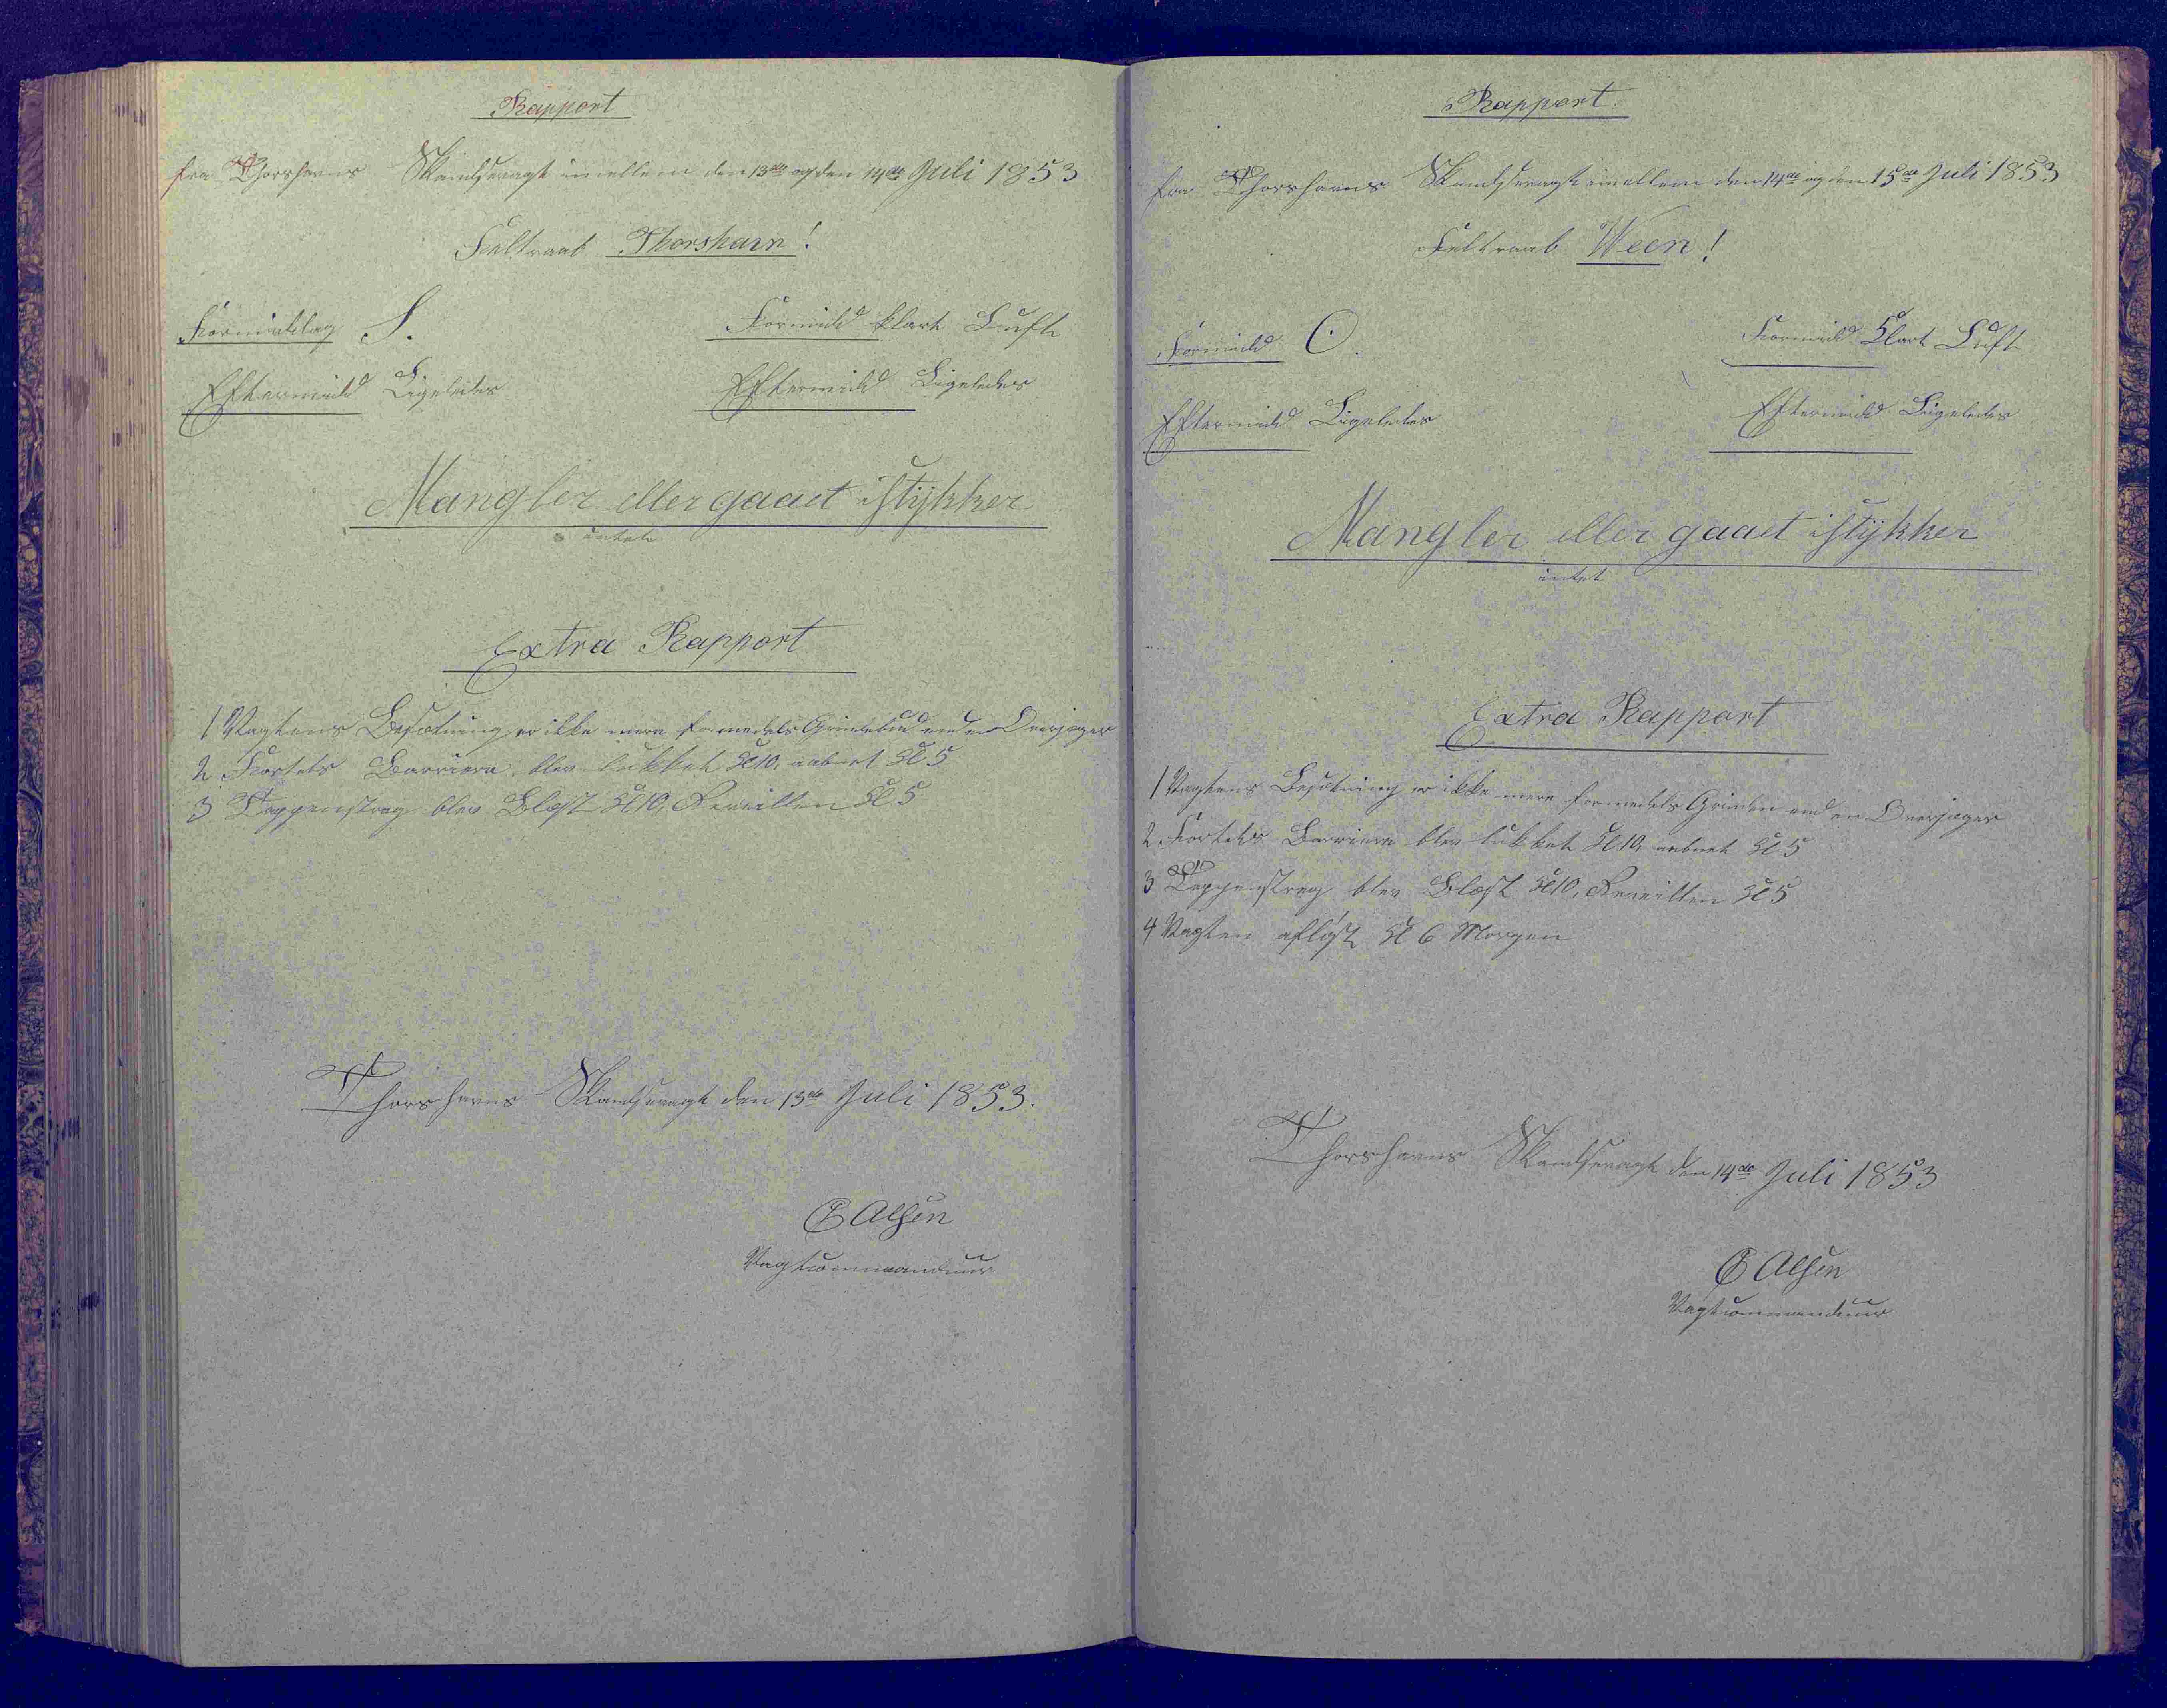 Rapport
fra Thorshavns Skandsevagt imellem den 13de og den 14de Juli 1853
Feltraab Thorshavn!
Formiddag S.
Formidd klart Luft
Eftermidd Ligeledes
Eftermidd Ligeledes
Mangler eller gaaet istÿkker
intet
Extra Rapport
1 Vagtens Besætning er ikke mere formedels end en Overjæger
2 Fortets Barriere blev lukket Kl 10, aabnet Kl 5
3 Tappenstreg blev Blæst Kl 10, Reveillen Kl 5
Thorshavns Skandsevagt den 13de Juli 1853.
Vagtcommandeur
Rapport.
fra Thorshavns Skandsevagt imellem den 14de og den 15de Juli 1853
Feltraab Ween!
Formidd O.
Formidd Klart Luft
Eftermidd Ligeledes
Eftermidd Ligeledes
Mangler eller gaaet istÿkker
intet
Extra Rapport
1 Vagtens Besætning er ikke mere formedels Grinden end en Overjæger
2 Fortets Barriere blev lukket Kl 10, aabnet Kl 5
3 Tappenstreg blev Blæst Kl 10, Reveillen Kl 5
4 Vagten afløst Kl 6 Morgen
Thorshavns Skandsevagt den 14de Juli 1853
Vagtcommandeur